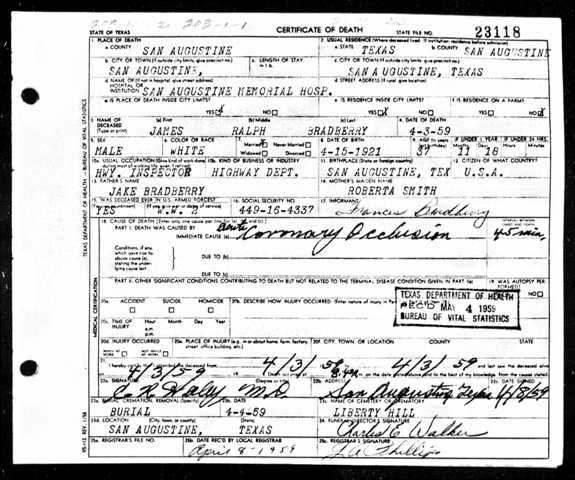 STATE OF TEXAS
CERTIFICATE OF DEATH
23118
1. PLACE OF DEATH
a. COUNTY SAN AUGUSTINE
2. USUAL RESIDENCE (Where deceased lived. If institution: residence before admission)
a. STATE TEXAS
b. COUNTY SAN AUGUSTINE
b. CITY OR TOWN (If outside city limits, give precinct no.)
SAN AUGUSTINE,
c. LENGTH OF STAY in 1 b.
c. CITY OR TOWN (If outside city limits, give precinct no.)
SAN AUGUSTINE, TEXAS
d. NAME OF (If not in hospital, give street address)
HOSPITAL OR INSTITUTION SAN AUGUSTINE MEMORIAL HOSP.
d. STREET ADDRESS (If rural, give location)
e. IS PLACE OF DEATH INSIDE CITY LIMITS?
YES NO
e. IS RESIDENCE INSIDE CITY LIMITS?
YES NO
f. IS RESIDENCE ON A FARM?
YES NO
3. NAME OF DECEASED (Type or print)
(a) First JAMES
(b) Middle RALPH
(c) Last BRADBERRY
4. DATE OF DEATH
4-3-59
5. SEX
MALE
6. COLOR OR RACE
WHITE
7. Married Never Married
Widowed Divorced
8. DATE OF BIRTH
4-15-1921
9. AGE (In years
37
IF UNDER 1 YEAR
11 18
IF UNDER 24 HRS.
10a. USUAL OCCUPATION (Give kind of work done
HWY. INSPECTOR
10b. KIND OF BUSINESS OR INDUSTRY
HIGHWAY DEPT.
11. BIRTHPLACE (State or foreign country)
SAN AUGUSTINE, TEX
12. CITIZEN OF WHAT COUNTRY?
U.S.A.
13. FATHER'S NAME
JAKE BRADBERRY
14. MOTHER'S MAIDEN NAME
ROBERTA SMITH
15. WAS DECEASED EVER IN U.S. ARMED FORCES?
YES
16. SOCIAL SECURITY NO.
449-16-4337
17. INFORMANT
Frances Bradberry
18. CAUSE OF DEATH [Enter only one cause per line for
PART I. DEATH WAS CAUSED BY:
IMMEDIATE CAUSE (a) Acute Coronary Occlusion
45 min.
Conditions, if any, which gave rise to above cause (a), stating the underlying cause last.
DUE TO (b)
DUE TO (c)
PART II. OTHER SIGNIFICANT CONDITIONS CONTRIBUTING TO DEATH BUT NOT RELATED TO THE TERMINAL DISEASE CONDITION GIVEN IN PART I(a)
19. WAS AUTOPSY PERFORMED?
MEDICAL CERTIFICATION
20a. ACCIDENT SUICIDE HOMICIDE
20b. DESCRIBE HOW INJURY OCCURRED.
TEXAS DEPARTMENT OF HEALTH
REC'D MAY 4 1959
BUREAU OF VITAL STATISTICS
20c. TIME OF INJURY
Hour Month Day Year
a.m.
p.m.
20d. INJURY OCCURRED
20e. PLACE OF INJURY (e.g. in or about home, farm, factory, street, office building, etc.)
20f. CITY, TOWN, OR LOCATION
COUNTY
STATE
21. I hereby certify
4/3/59
4/3/59
4/3/59
and last saw the deceased alive
22a. SIGNATURE
C R Haley M.D.
(Degree or title)
22b. ADDRESS
San Augustine Texas
22c. DATE SIGNED
4/8/59
23a. BURIAL, CREMATION, REMOVAL (Specify)
BURIAL
23b. DATE
4-4-59
23c. NAME OF CEMETERY OR CREMATORY
LIBERTY HILL
23d. LOCATION (City, town, or county) (State)
SAN AUGUSTINE, TEXAS
24. FUNERAL DIRECTOR'S SIGNATURE
Charles E Walker
25a. REGISTRAR'S FILE NO.
25b. DATE REC'D BY LOCAL REGISTRAR
April 8-1959
25c. REGISTRAR'S SIGNATURE
Phillips